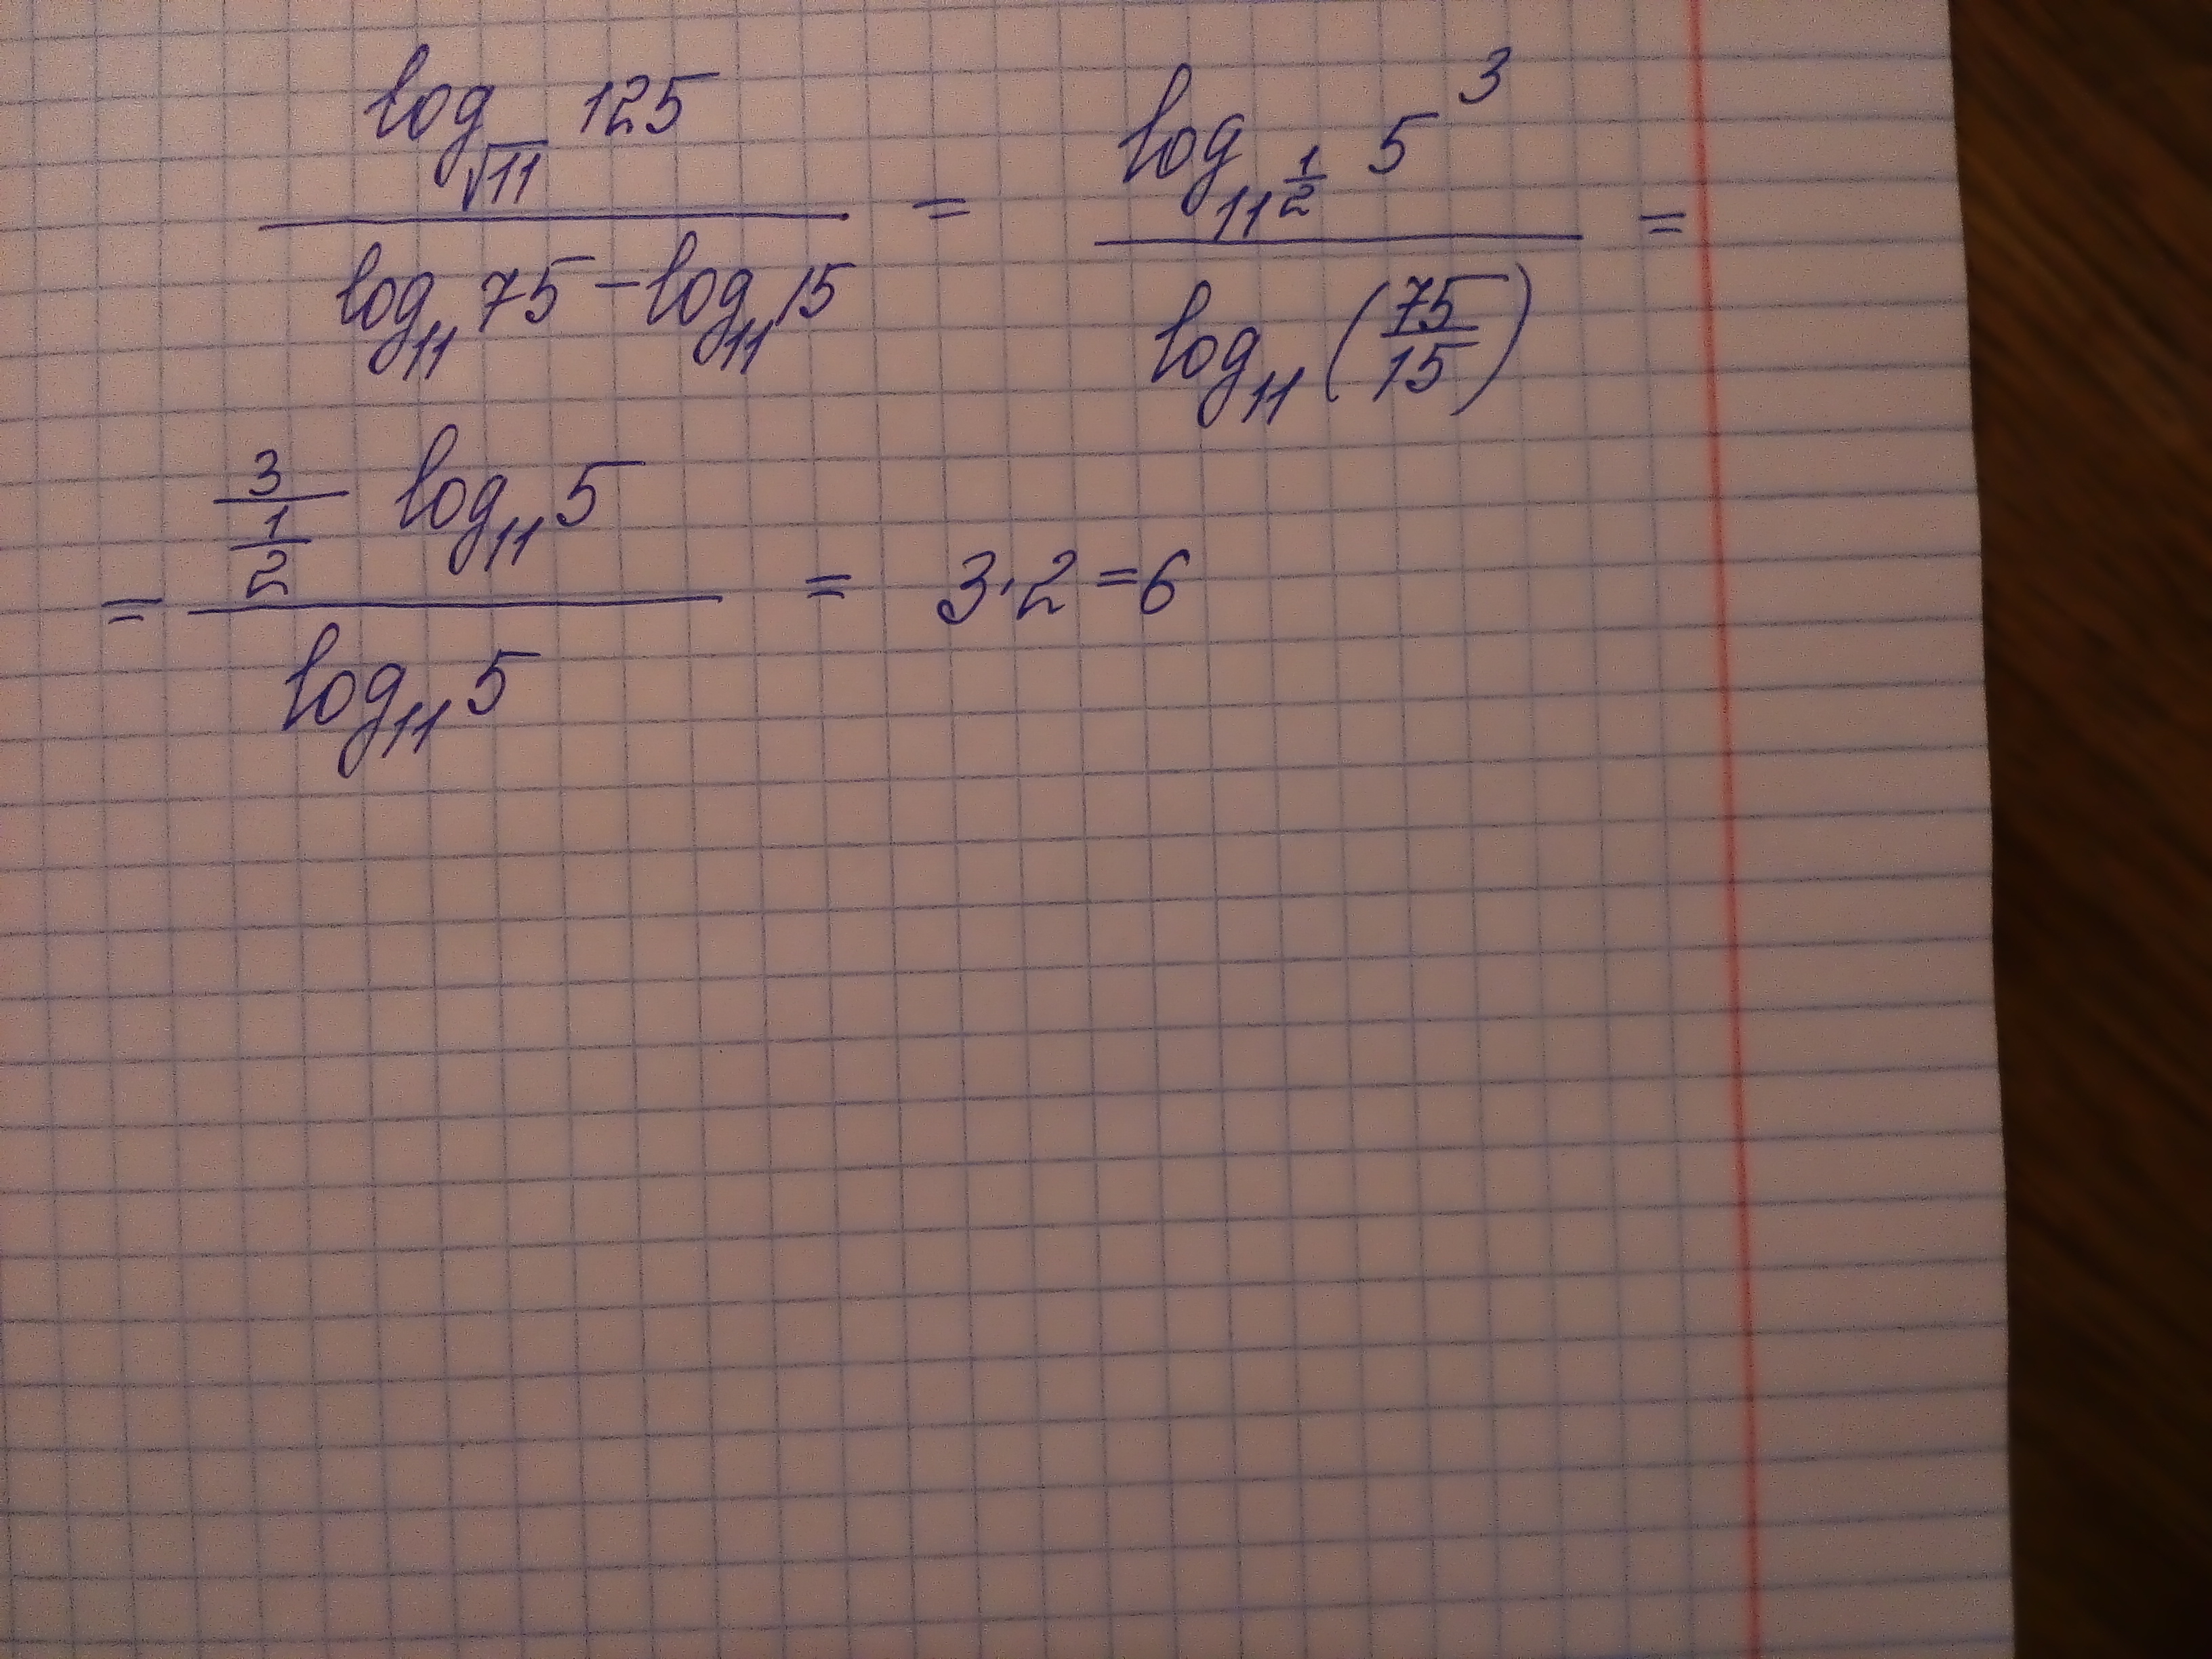 log_{√11} 125 / (log_{11} 75 − log_{11} 15) = log_{11^{1/2}} 5^3 / log_{11} (75/15) =
= (3/(1/2) log_{11} 5) / (log_{11} 5) = 3·2 = 6